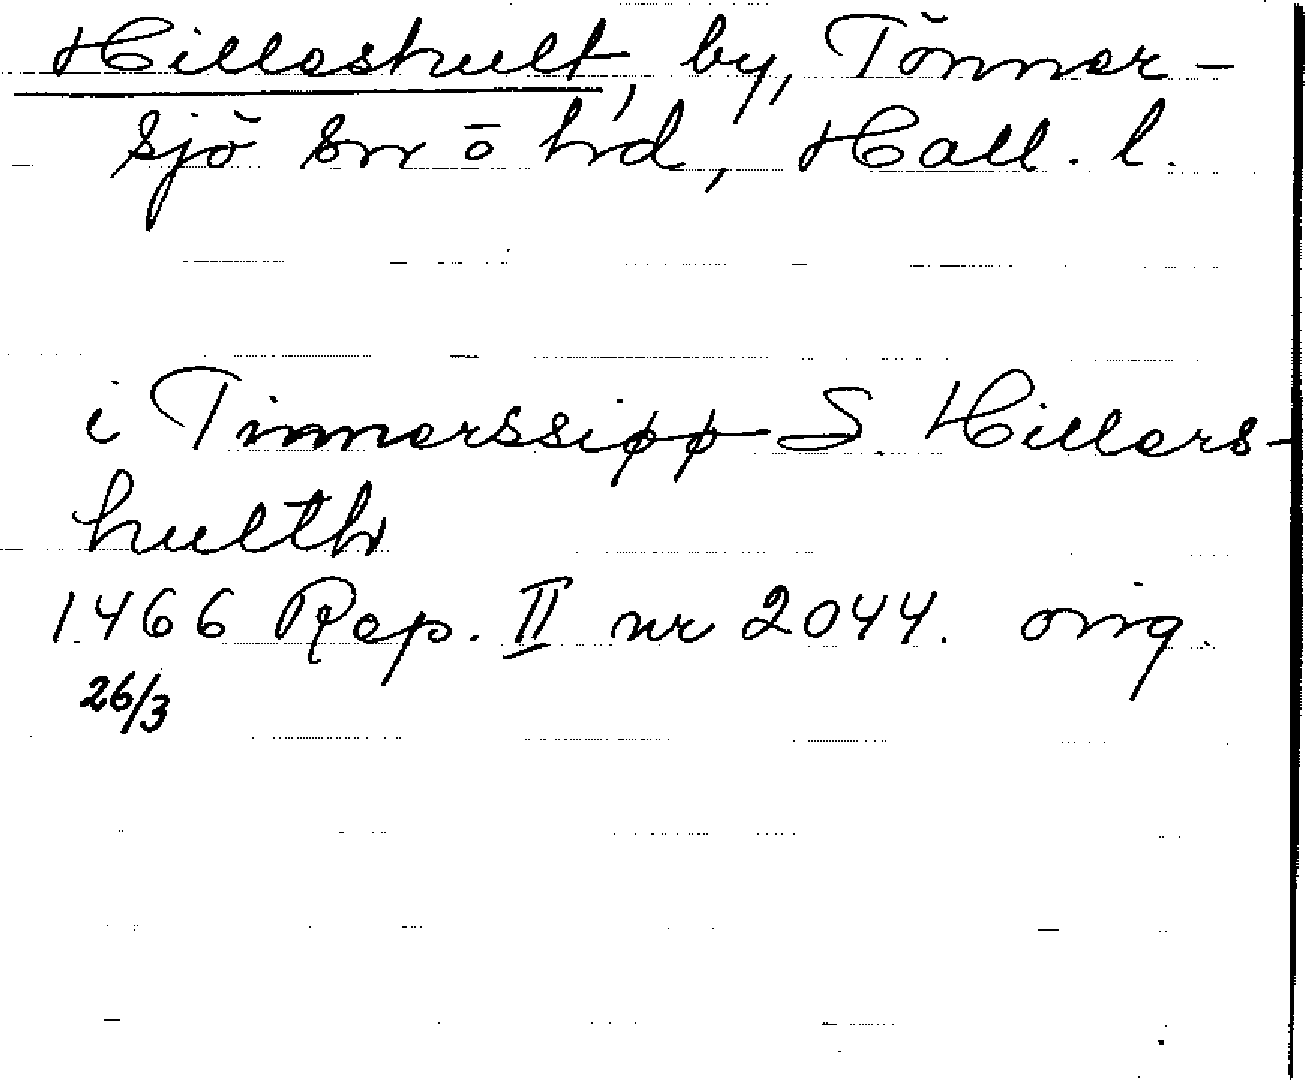 Hilleshult, by, Tönner-
sjö sn o hd, Hall. l.
i Tinnerssi𝑝𝑝 S. Hillers-
hullth
1466 Rep. II nr 2044. orig.
26/3